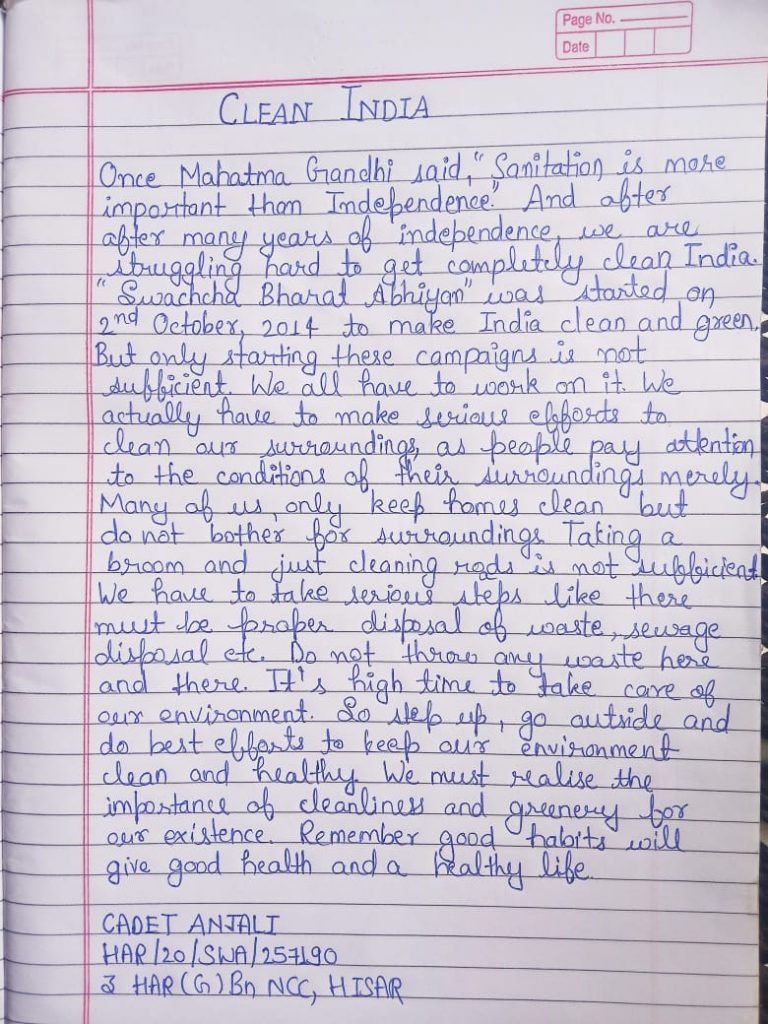 Page No.
Date
CLEAN INDIA
Once Mahatma Gandhi said, "Sanitation is more
important than Independence." And after
after many years of independence, we are
struggling hard to get completely clean India.
"Swachcha Bharat Abhiyan" was started on
2nd October, 2014 to make India clean and green.
But only starting these campaigns is not
sufficient. We all have to work on it. We
actually have to make serious efforts to
clean our surroundings, as people pay attention
to the conditions of their surroundings merely.
Many of us, only keep homes clean but
do not bother for surroundings. Taking a
broom and just cleaning rods is not sufficient
We have to take serious steps like there
must be proper disposal of waste, sewage
disposal etc. Do not throw any waste here
and there. It's high time to take care of
our environment. So step up, go outside and
do best efforts to keep our environment
clean and healthy. We must realise the
importance of cleanliness and greenery for
our existence. Remember good habits will
give good health and a healthy life.
CADET ANJALI
HAR/20/SWA/257190
3 HAR(G) Bn NCC, HISAR